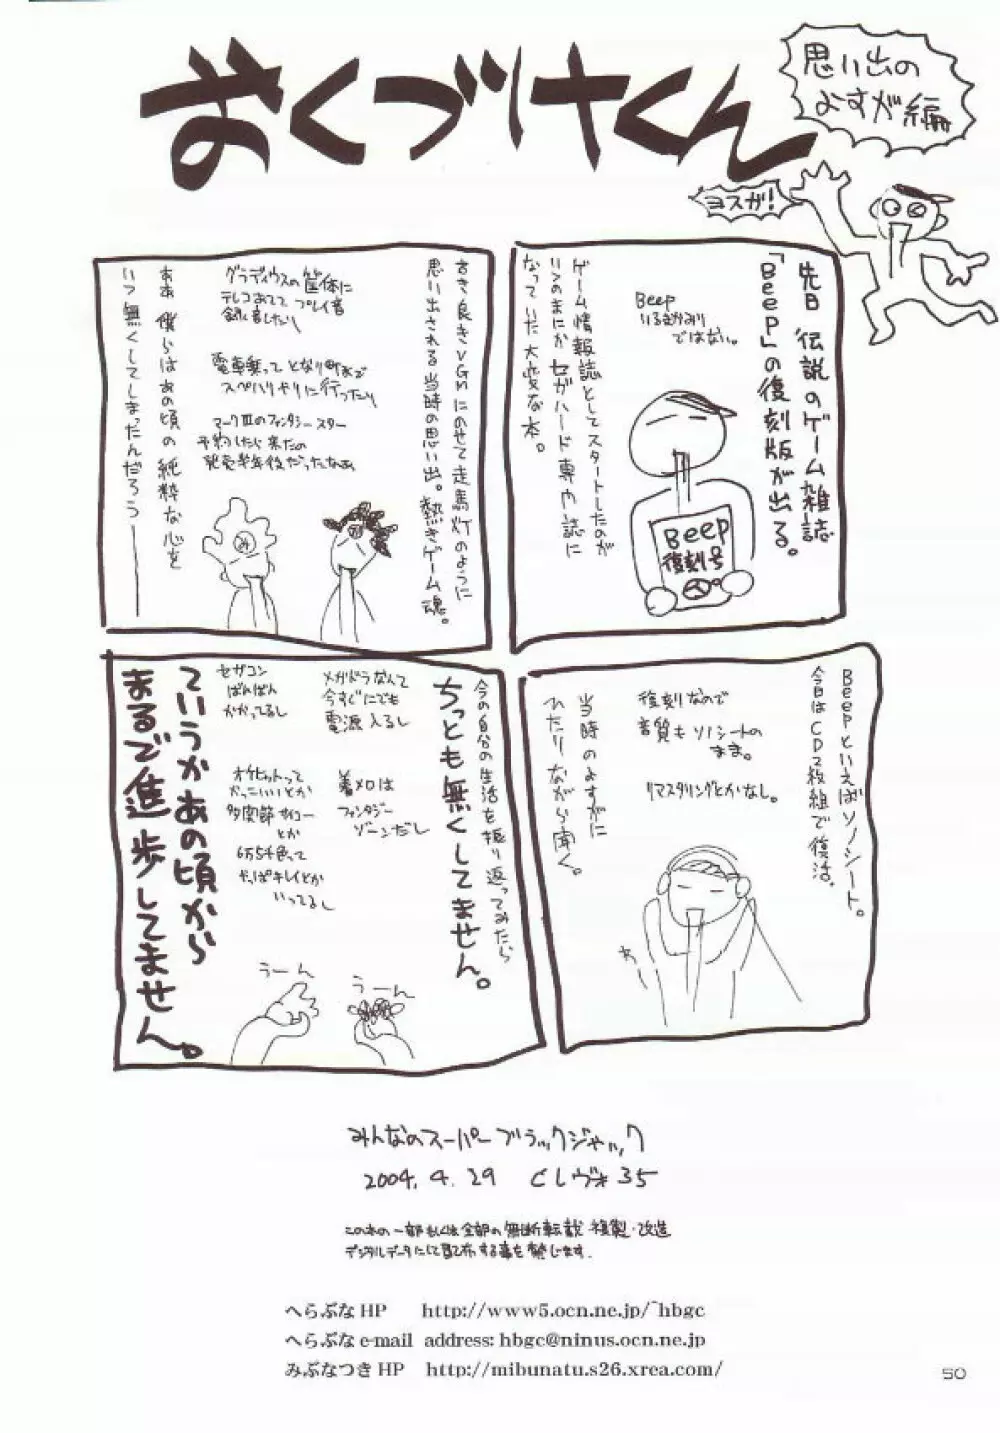 おくづけくん
思い出の
よすが編
ヨスガ!
先日、伝説のゲーム雑誌
「Beep」の復刻版が出る。
Beep
いるまかみり
ではない。
ゲーム情報誌としてスタートしたのが
いつのまにかセガハード専門誌に
なっていた大変な本。
Beep
復刻号
古き良きVGMにのせて走馬灯のように
思い出される当時の思い出。熱きゲーム魂。
グラディウスの筐体に
テレコあててプレイ音
録音したり
電車乗ってとなり町まで
スペハリやりに行ったり
マークⅢのファンタシースター
予約したら来たの
発売半年後だったなぁ
ああ 僕らはあの頃の純粋な心を
いつ無くしてしまったんだろう――
Beepといえばソノシート。
今日はCD2枚組で復活。
復刻なので
音質もソノシートの
まま。
リマスタリングとかなし。
当時のよすがに
ひたりながら聞く。
今の自分の生活を振り返ってみたら
ちっとも無くしてません。
メガドラなんて
今すぐにでも
電源入るし
セガコン
ばんばん
かかってるし
着メロは
ファンタジー
ゾーンだし
オケヒットって
かっこいいとか
多関節サイコー
とか
6万5千色って
やっぱキレイとか
いってるし
ていうかあの頃から
まるで進歩してません。
うーん
うーん
みんなのスーパーブラックジャック
2004.4.29 Cレヴォ35
この本の一部もしくは全部の無断転載・複製・改造
デジタルデータにして配布する事を禁じます.
へらぶな HP http://www5.ocn.ne.jp/~hbgc
へらぶな e-mail address: hbgc@ninus.ocn.ne.jp
みぶなつき HP http://mibunatu.s26.xrea.com/
50